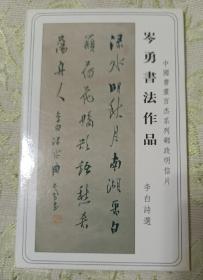 中國書畫百杰系列郵政明信片
岑勇書法作品
李白詩選
渌水明秋月南湖采白
蘋荷花嬌欲語愁殺
蕩舟人